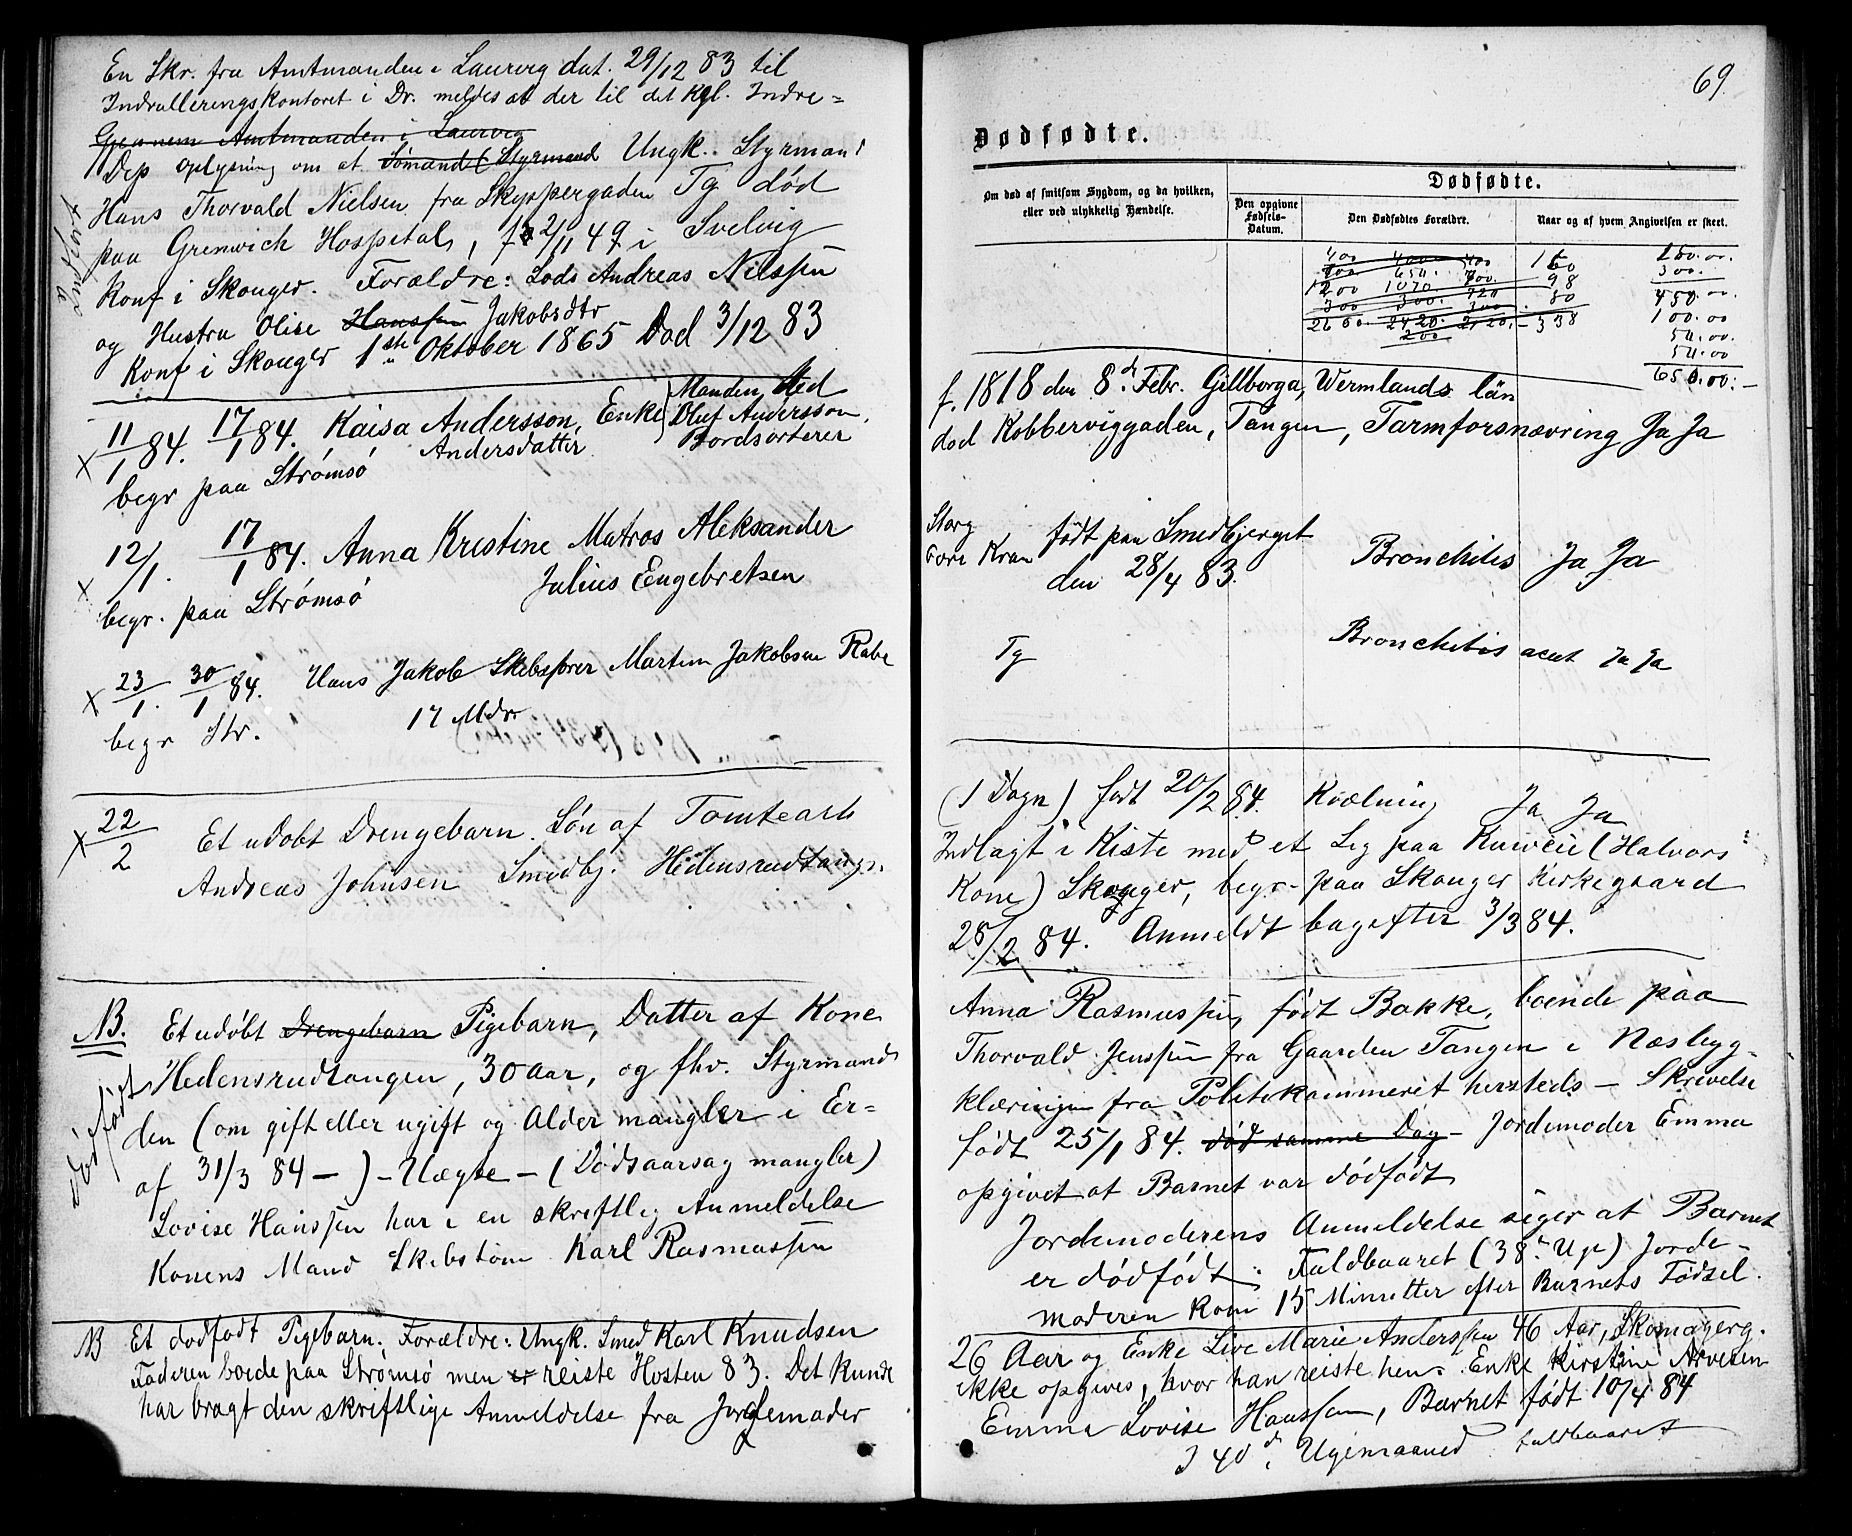 En Skr. fra Amtmanden i Laurvig dat. 29/12 83 til
Indrulleringskontoret i Dr. meldes at der til det kgl. Indre=
Gjennem Amtmanden i Laurvig
Dep oplysning om at Sømand Styrmand Ungk. Styrmand
Hans Thorvald Nielsen fra Skyppergaden Tg død
paa Grenwich Hospital, f. 2/11 49 i Svelvig
Konf i Skouger. Forældre: Lods Andreas Nilssen
og Hustru Olise Hanssen Jakobsdtr
Konf i Skouger 1ste Oktober 1865 Død 3/12 83
x 11/1 84. 17/1 84. Kaisa Andersson, Enke Manden død
Andersdatter Oluf Andersson,
Bordsorterer
begr paa Strømsø
x 12/1. 17/1 84. Anna Kristine Matros Aleksander
Julius Engebretsen
begr. paa Strømsø
x 23/1. 30/1 84. Hans Jakob Skibsfører Martin Jakobsen Rabe
17 Mdr
begr Str.
x 22/2 Et udøbt Drengebarn. Søn af Tomtearb
Andreas Johnsen Smedbj. Hedensrudtangn
NB. Et udøbt Drengebarn Pigebarn, Datter af Kone
Dødfødt
Hedensrudtangen, 30 aar, og fhv. Styrmand
den (om gift eller ugift og Alder mangler i Er=
af 31/3 84 —) — Uægte — (Dødsaarsag mangler)
Lovise Hanssen har i en skriftlig Anmeldelse
Konens Mand Skibstøm Karl Rasmussen
NB Et dødfødt Pigebarn; Forældre: Ungk. Smed Karl Knudsen
Faderen boede paa Strømsø men er reiste Høsten 83. Det kunde
har bragt den skriftlige Anmeldelse fra Jordemoder
69.
Dødfødte.
Om død af smitsom Sygdom, og da hvilken,
eller ved ulykkelig Hændelse.
Dødfødte.
Den opgivne
Fødsels-
Datum.
Den Dødfødtes Forældre.
Naar og af hvem Angivelsen er skeet.
400 400 400 160
700 650. 700 300.
1200 1070 720 98 450.00
300 300. 300. 80 100.00
2600. 2420. 2120. — 338 50.00.
200 50.00
650.00: —
f. 1818 den 8de Febr. Gillborga, Wermlands län
død Kobberviggaden, Tangen, Tarmforsnævring Ja Ja
født paa Smedbjerget
den 28/4 83. Bronchitis Ja Ja
Tg Bronchitis acut Ja Ja
(1 Døgn) født 20/2 84. Kvælning Ja Ja
Indlagt i Kiste med et Lig paa (Halvors
Kone) Skouger, begr. paa Skouger Kirkegaard
28/2 84. Anmeldt bagefter 3/3 84.
Anna Rasmussen, født Bakke, boende paa
Thorvald Jenssen fra Gaarden Tangen i Næsbyg-
klæringen fra Politikammeret hersteds — Skrivelse
født 25/1 84. død samme Dag — Jordemoder Emma
opgivet at Barnet var dødfødt
Jordemoderens Anmeldelse siger at Barnet
er dødfødt. Fuldbaaret (38de Uge) Jorde-
moderen kom 15 Minutter efter Barnets Fødsel.
26 Aar og Enke Live Marie Anderssen 46 Aar, Skomagerg.
ikke opgives, hvor han reiste hen. Enke Kirstine Arvesen
Emma Lovise Hanssen, Barnet født 10/4 84
I 40de Ugemaaned fuldbaaret